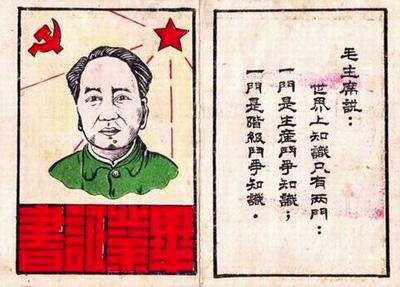 畢業證書
毛主席說：
世界上知識只有两門：
一門是生產鬥爭知識；
一門是階級鬥爭知識．